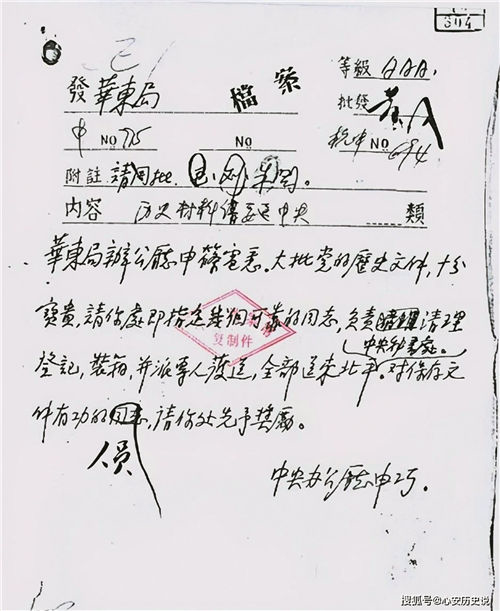 304
檔案
等級 AAA.
發 華東局
批發
申 NO 725
NO
NO 694
附註 請
内容 历史材料 中央 類
華東局辦公廳申篠電悉。大批党的歷史文件,十分
寶貴,請你處即指定幾個可靠的同志,负责清理
中央秘書处。
登記,裝箱,并派專人護送,全部送来北平。对保存文
件有功的同志,請你处先予獎勵。
人员
中央办公廳申25。
复制件
搜狐号@心安历史说